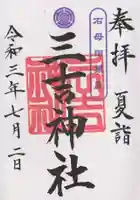 奉拝
夏詣
三吉神社
令和三年七月二日